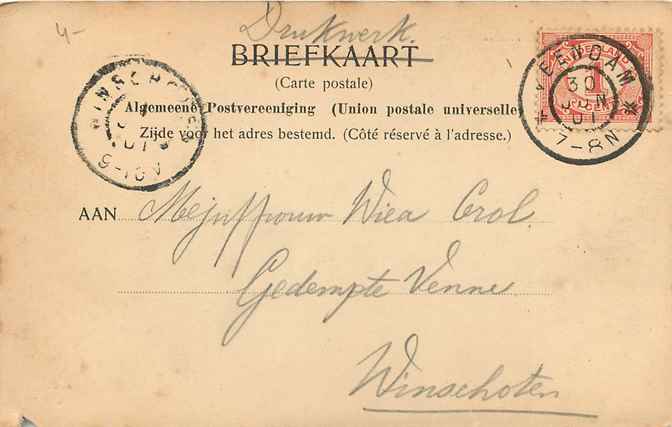 4-
Drukwerk.
BRIEFKAART
(Carte postale)
Algemeene Postvereeniging (Union postale universelle
Zijde voor het adres bestemd. (Côté réservé à l'adresse.)
VEENDAM
30
JUN
01
7-8N
WINSCHOTEN
01
9-10V
AAN Mejuffrouw Wiea Crol.
Gedempte Venne
Winschoten